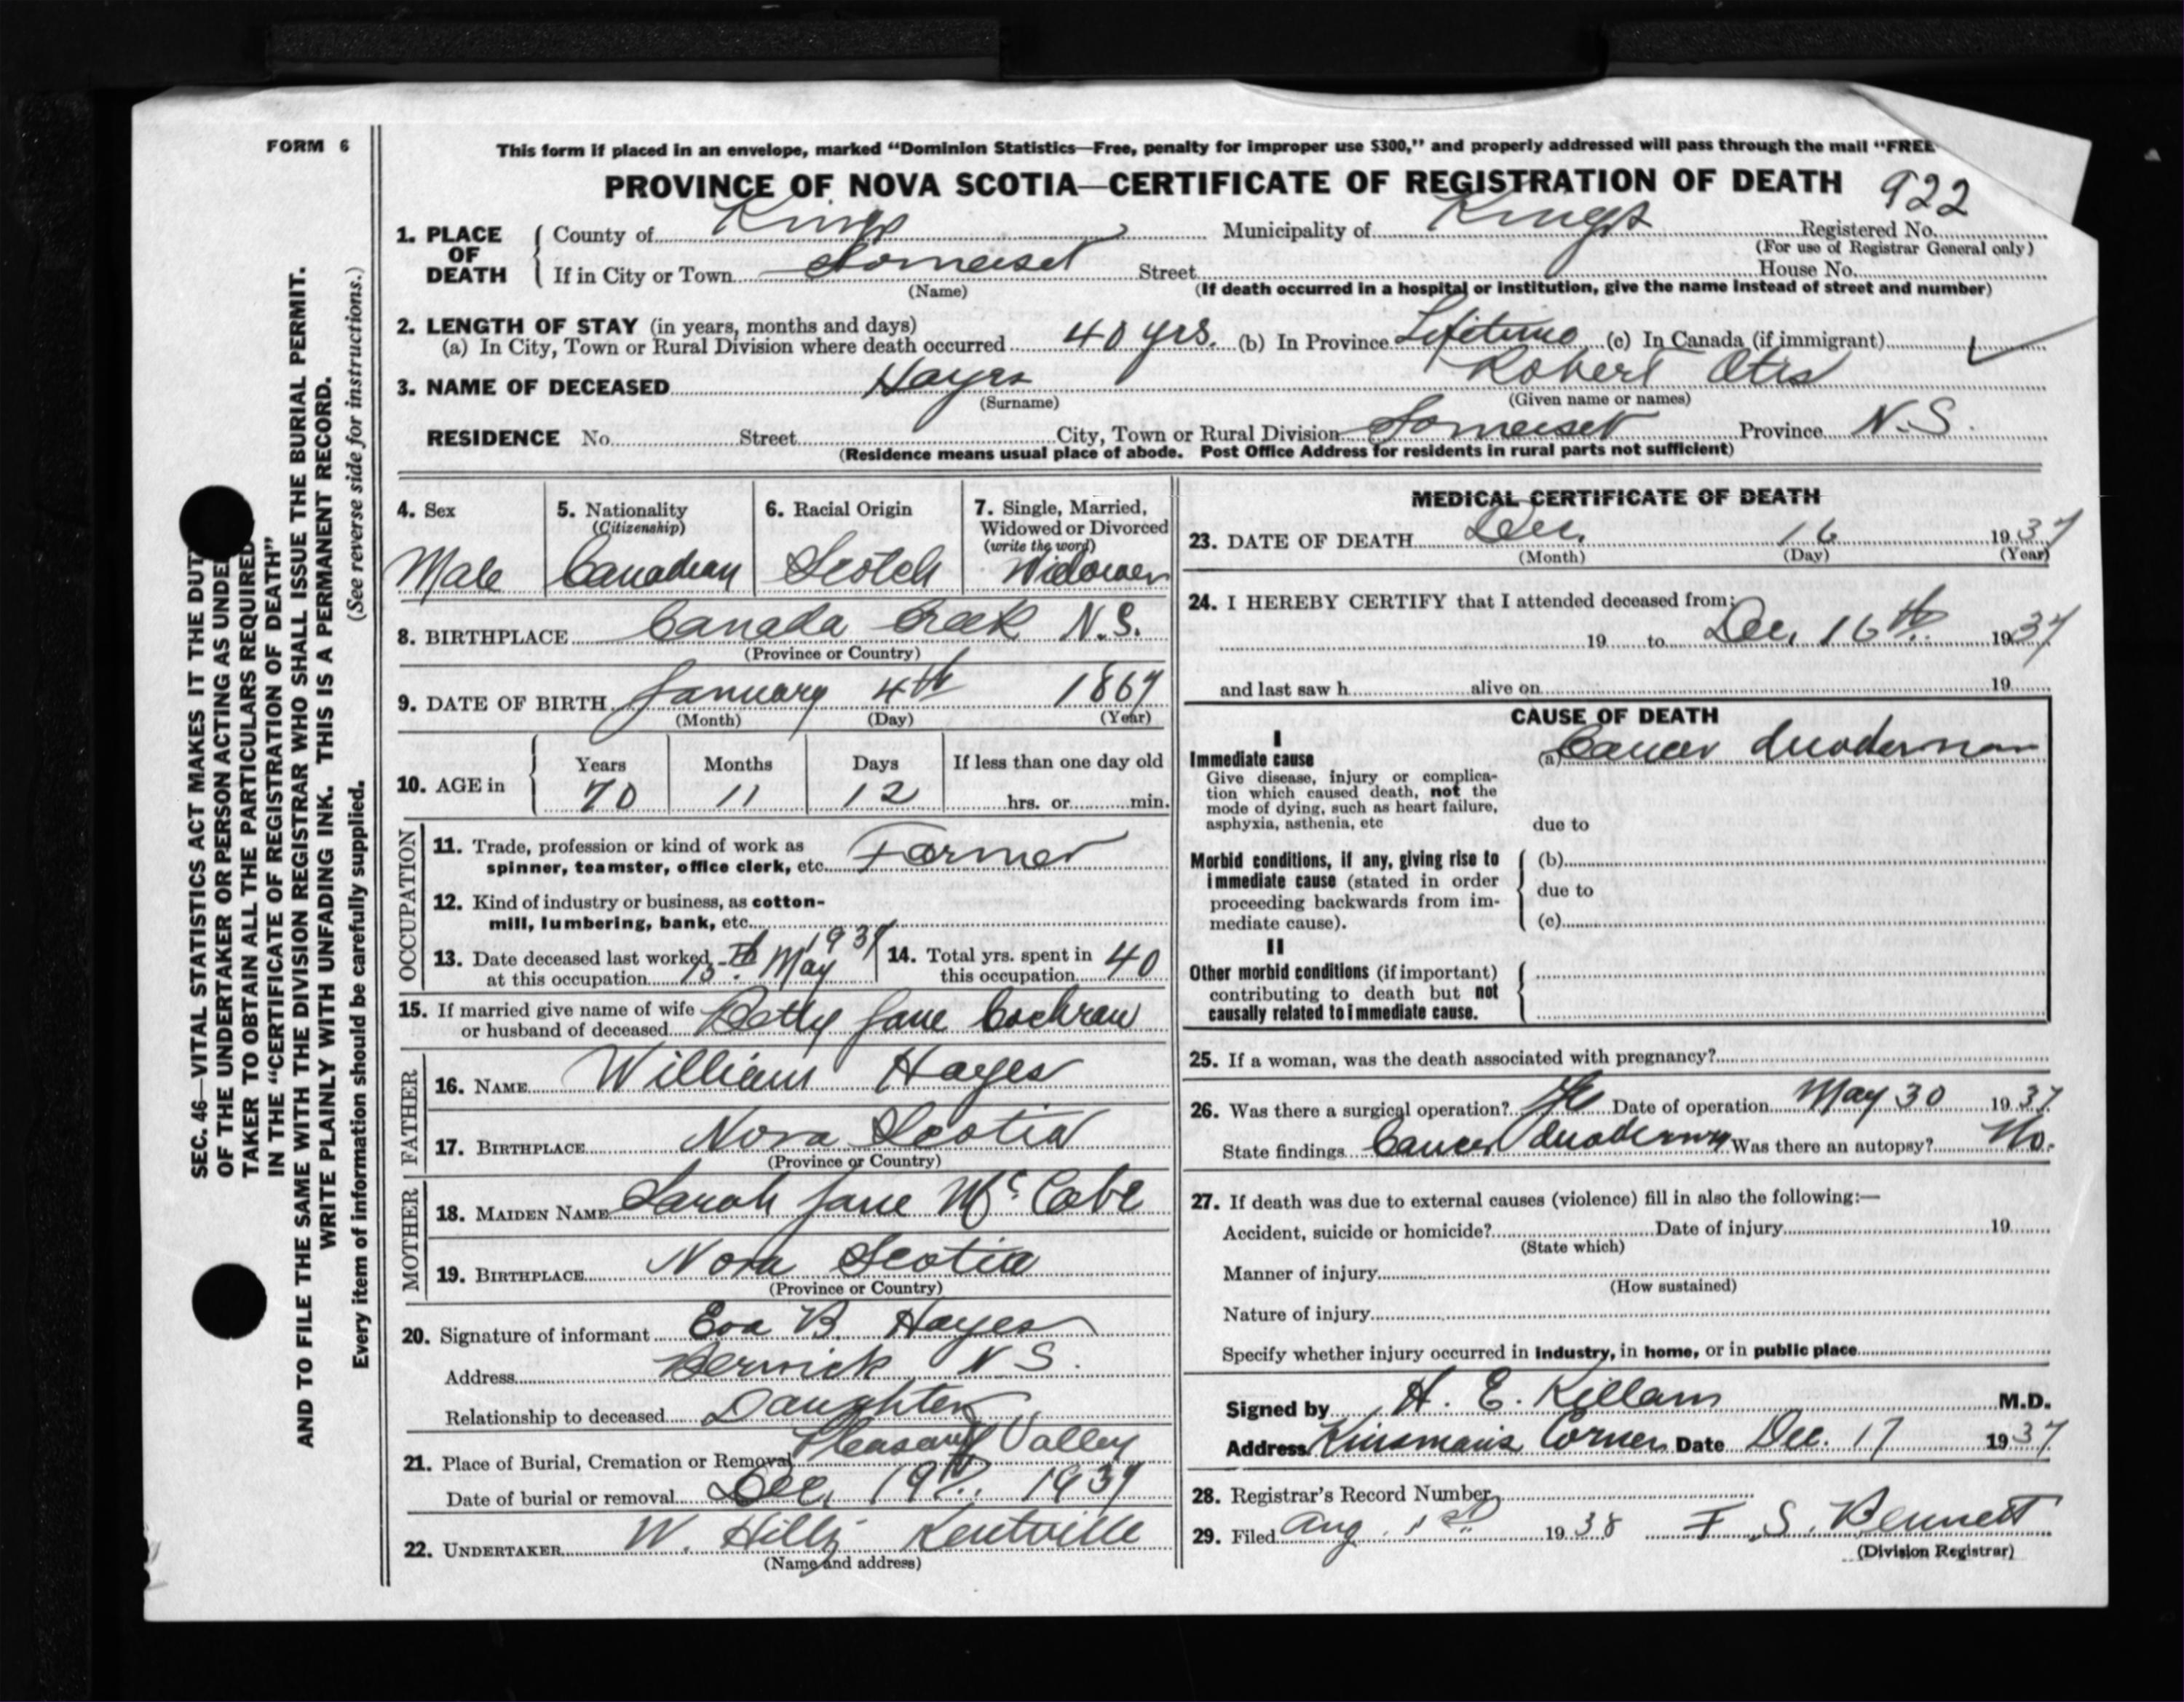 FORM 6
SEC. 46—VITAL STATISTICS ACT MAKES IT THE DUT
OF THE UNDERTAKER OR PERSON ACTING AS UNDE
TAKER TO OBTAIN ALL THE PARTICULARS REQUIRED
IN THE "CERTIFICATE OF REGISTRATION OF DEATH"
AND TO FILE THE SAME WITH THE DIVISION REGISTRAR WHO SHALL ISSUE THE BURIAL PERMIT.
WRITE PLAINLY WITH UNFADING INK. THIS IS A PERMANENT RECORD.
Every item of information should be carefully supplied. (See reverse side for instructions.)
This form if placed in an envelope, marked "Dominion Statistics—Free, penalty for improper use $300," and properly addressed will pass through the mail "FREE
PROVINCE OF NOVA SCOTIA—CERTIFICATE OF REGISTRATION OF DEATH 922
1. PLACE OF DEATH County of Kings Municipality of Kings Registered No.
(For use of Registrar General only)
If in City or Town Somerset Street House No.
(Name) (If death occurred in a hospital or institution, give the name instead of street and number)
2. LENGTH OF STAY (in years, months and days)
(a) In City, Town or Rural Division where death occurred 40 yrs. (b) In Province Lifetime (c) In Canada (if immigrant)
3. NAME OF DECEASED Hayes Robert Otis
(Surname) (Given name or names)
RESIDENCE No. Street City, Town or Rural Division Somerset Province N.S.
(Residence means usual place of abode. Post Office Address for residents in rural parts not sufficient)
4. Sex 5. Nationality (Citizenship) 6. Racial Origin 7. Single, Married, Widowed or Divorced (write the word)
Male Canadian Scotch Widower
8. BIRTHPLACE Canada Creek N.S.
(Province or Country)
9. DATE OF BIRTH January 4th 1867
(Month) (Day) (Year)
10. AGE in Years Months Days If less than one day old
70 11 12 hrs. or min.
OCCUPATION
11. Trade, profession or kind of work as
spinner, teamster, office clerk, etc. Farmer
12. Kind of industry or business, as cotton-
mill, lumbering, bank, etc.
13. Date deceased last worked
at this occupation 15th May 1937
14. Total yrs. spent in
this occupation 40
15. If married give name of wife
or husband of deceased Betty Jane Cochran
FATHER
16. NAME William Hayes
17. BIRTHPLACE Nova Scotia
(Province or Country)
MOTHER
18. MAIDEN NAME Sarah Jane McCabe
19. BIRTHPLACE Nova Scotia
(Province or Country)
20. Signature of informant Eva B. Hayes
Address Berwick N S.
Relationship to deceased Daughter
21. Place of Burial, Cremation or Removal Pleasant Valley
Date of burial or removal Dec. 19th 1937
22. UNDERTAKER W. Hiltz Kentville
(Name and address)
MEDICAL CERTIFICATE OF DEATH
23. DATE OF DEATH Dec. 16 1937
(Month) (Day) (Year)
24. I HEREBY CERTIFY that I attended deceased from:
19 to Dec. 16th 1937
and last saw h alive on 19
CAUSE OF DEATH
I
Immediate cause (a) Cancer duodenum
Give disease, injury or complica-
tion which caused death, not the
mode of dying, such as heart failure,
asphyxia, asthenia, etc due to
Morbid conditions, if any, giving rise to (b)
immediate cause (stated in order
proceeding backwards from im- due to
mediate cause). (c)
II
Other morbid conditions (if important)
contributing to death but not
causally related to immediate cause.
25. If a woman, was the death associated with pregnancy?
26. Was there a surgical operation? Date of operation May 30 1937
State findings Cancer duodenum Was there an autopsy? No.
27. If death was due to external causes (violence) fill in also the following:—
Accident, suicide or homicide? Date of injury 19
(State which)
Manner of injury
(How sustained)
Nature of injury
Specify whether injury occurred in industry, in home, or in public place
Signed by H. E. Killam M.D.
Address Kinsman's Corner Date Dec. 17 1937
28. Registrar's Record Number
29. Filed Aug. 1st 1938 F. S. Bennett
(Division Registrar)